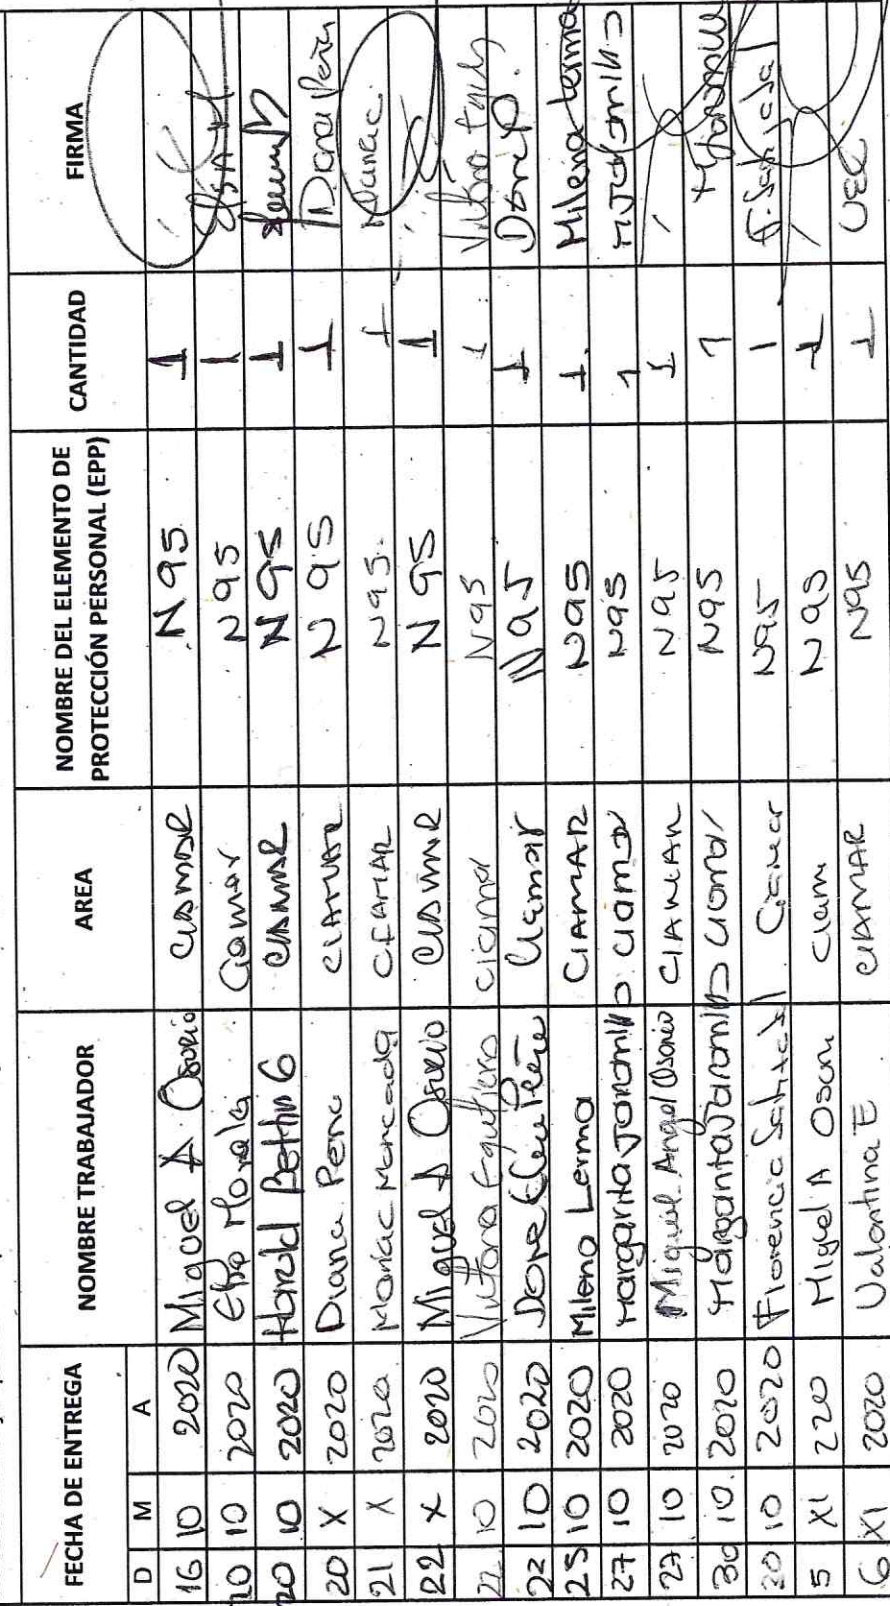 FECHA DE ENTREGA NOMBRE TRABAJADOR AREA NOMBRE DEL ELEMENTO DE PROTECCIÓN PERSONAL (EPP) CANTIDAD FIRMA
D M A
16 10 2020 Miguel A Osorio Ciamar N95 1
20 10 2020 Morales Ciamar N95 1
20 10 2020 Harold Bettin G Ciamar N95 1
20 X 2020 Diana Pena CIAMAR N95 1 Diana Peña
21 X 2020 Mariac Mercado CIAMAR N95. 1 Mariac.
22 X 2020 Miguel A Osorio CIAMAR N95 1
22 10 2020 Victoria Eguiluz ciamar N95 1
22 10 2020 Peña Ciamar N95 1
25 10 2020 Milena Lerma CIAMAR N95 1 Milena Lerma
27 10 2020 Margarita Jaramillo Ciamar N95 1 MJaramillo
27 10 2020 Miguel Angel Osorio CIAMAR N95 1
30 10. 2020 Margarita Jaramillo Ciamar N95 1 MJaramillo
30 10 2020 Florencia Ciamar N95 1
5 XI 220 Miguel A Osorio Ciam N95 1
6 XI 2020 Valentina E CIAMAR N95 1